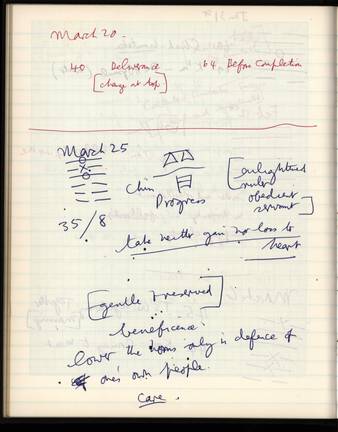 March 20.
40 Deliverance 64 Before Completion
[change at top]
March 25
Chin
Progress
[enlightened
ruler
obedient
servant]
35/8
take neither gain nor loss to
heart
[gentle & reserved]
beneficence
lower the horns only in defence of
one's own people.
Care.